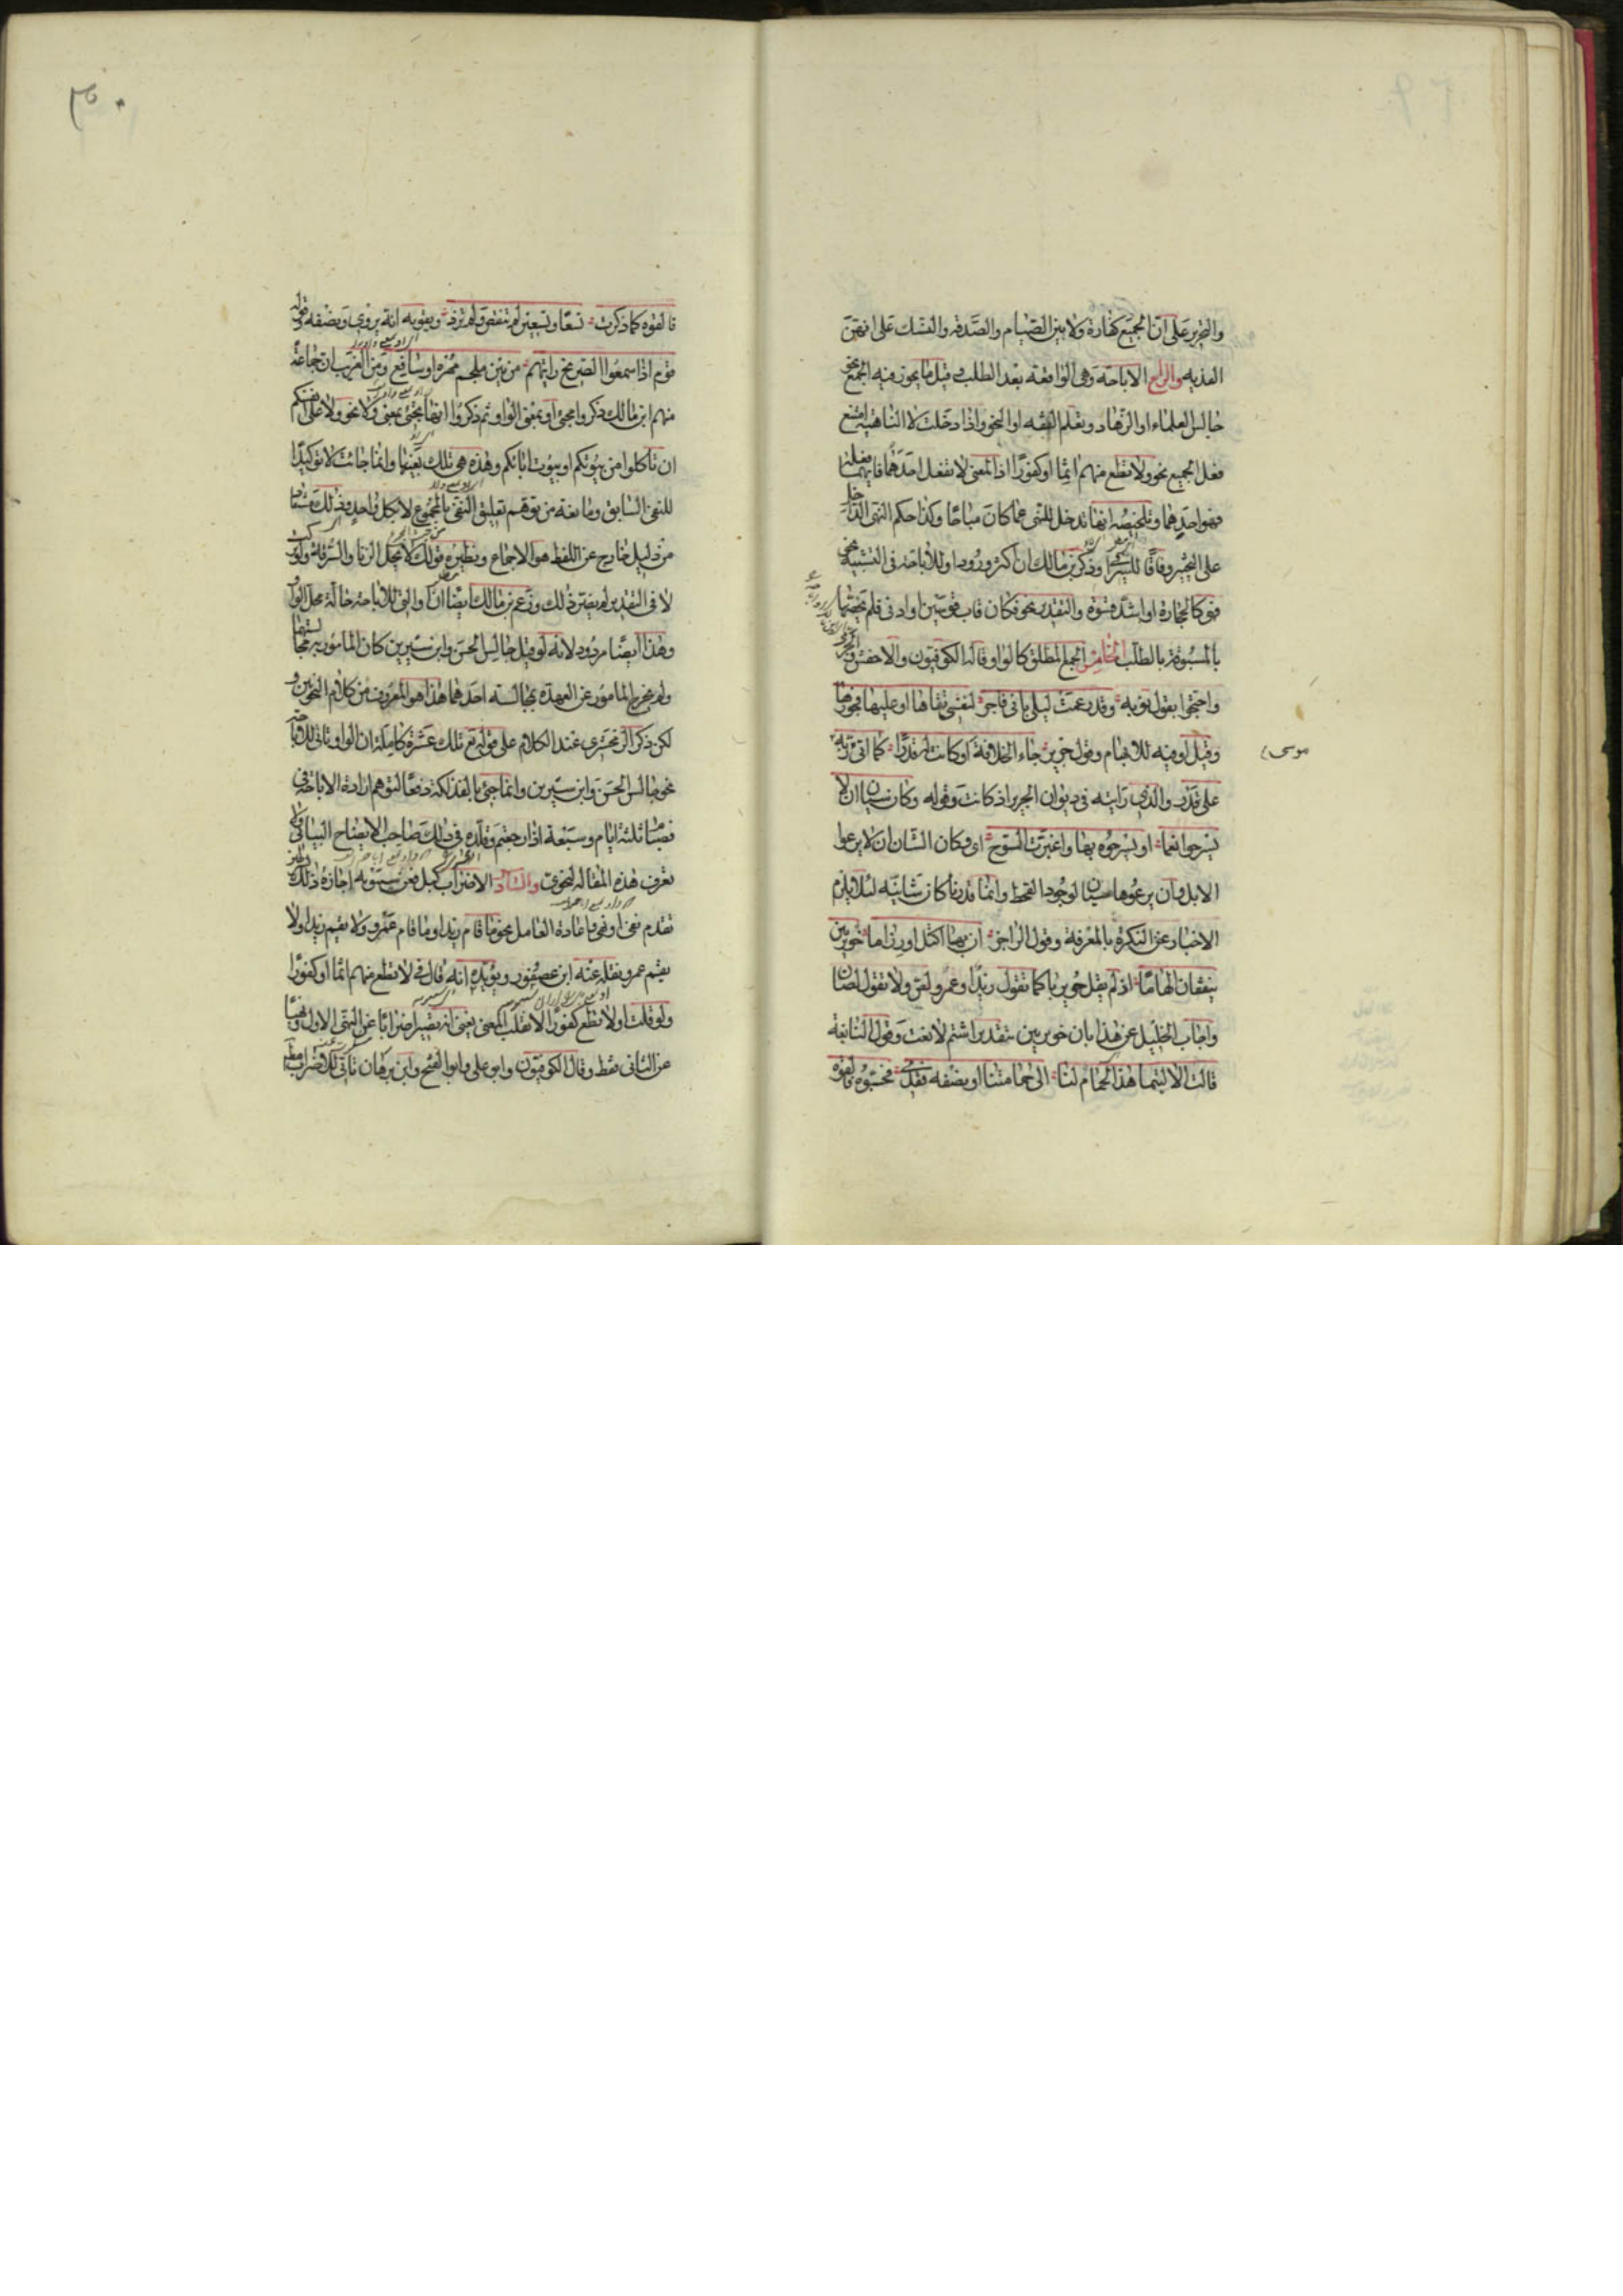 والتحرير على ان الجميع كفارة ولا بين الصيام والصدقة والنسك على انهن
الفدية والرابع الاباحة وهي الواقعة بعد الطلب وقبل ما يجوز فيه الجمع نحو
جالس العلماء او الزهاد وتعلم الفقه او النحو واذا دخلت لا الناهية امتنع
فعل الجميع نحو ولا تطع منهم اثما او كفورا اذ المعنى لا تفعل احدهما فايهما فعله
فهو احدهما وتلخيصه انها تدخل للنهى عما كان مباحا وكذا حكم النهى الداخل
على التخيير وفاقا للسيرافى وذكر بن مالك ان اكثر ورود او للاباحة فى التشبيه نحو
فهى كالحجارة او اشد قسوة والتقدير نحو فكان قاب قوسين او ادنى فلم يخصها
بالمسبوقة بالطلب الخامس الجمع المطلق كالواو قاله الكوفيون والاخفش والجرمى
واحتجوا بقول توبة وقد زعمت ليلى بانى فاجر لنفسى تقاها او عليها فجورها
وقيل او فيه للابهام وقول جرير جاء الخلافة او كانت له قدرا كما اتى ربه
موسى
على قدر والذى رايته فى ديوان الجرير اذ كانت وقوله وكان سيان ان لا
يسرحوا نعما او يسرحوه بها واغبرت السوح اى وكان الشان ان لا يرعوا
الابل وان يرعوها سيان لوجود القحط وانما قدرنا كان شانية لئلا يلزم
الاخبار عن النكرة بالمعرفة وقول الراجز ان بها اكتل او رزاما خويربين
ينقفان الهاما اذ لم يقل خويربا كما تقول زيد او عمرو لص ولا تقول لصان
واجاب الخليل عن هذا بان خويربين بتقدير اشتم لا نعت وقول النابغة
قالت الا ليتما هذا الحمام لنا الى حمامتنا او نصفه فقد فحسبوه فالفوه
فالفوه كما ذكرت تسعا وتسعين لم تنقص ولم تزد ويقويه انه يروى ونصفه وقوله
قوم اذا سمعوا الصريخ رايتهم من بين ملجم مهره او سافع ومن الغريب ان جماعة
منهم ابن مالك ذكروا مجئ او بمعنى الواو ثم ذكروا انها تجئ بمعنى ولا نحو ولا على انفسكم
ان تاكلوا من بيوتكم او بيوت ابائكم وهذه هى تلك بعينها وانما جائت لا توكيدا
للنفى السابق ومانعة من توهم تعليق النفى بالمجموع لا بكل واحد وذلك مستفاد
من دليل خارج عن اللفظ هو الاجماع ونظيره قولك لا يحل الزنا والسرقة ولو تركت
لا فى التقدير لم يضر ذلك وزعم بن مالك ايضا ان او التى للاباحة حالة محل الواو
وهذا ايضا مردود لانه لو قيل جالس الحسن وابن سيرين كان المامور به مجالستهما
ولم يخرج المامور عن العهدة بمجالسة احدهما هذا هو المعروف من كلام النحويين و
لكن ذكر الزمخشرى عند الكلام على قوله تع تلك عشرة كاملة ان الواو تاتى للاباحة
نحو جالس الحسن وابن سيرين وانما جئ بالفذلكة دفعا لتوهم ارادة الاباحة فى
فصيام ثلثة ايام وسبعة اذا رجعتم وقلده فى ذلك صاحب الايضاح البيانى ولا
تعرف هذه المقالة لنحوى والسادس الاضراب كبل فعن سيبويه اجازة ذلك
تقدم نفى او نهى واعادة العامل نحو ما قام زيد او ما قام عمرو ولا يقم زيد او لا
يقم عمرو ونقله عنه ابن عصفور ويؤيده انه قال فى لا تطع منهم اثما او كفورا
ولو قلت او لا تطع كفورا لانقلب المعنى يعنى انه يصير اضرابا عن النهى الاول ونهيا
عن الثانى فقط وقال الكوفيون وابو على وابو الفتح وابن برهان تاتى للاضراب مطلقا